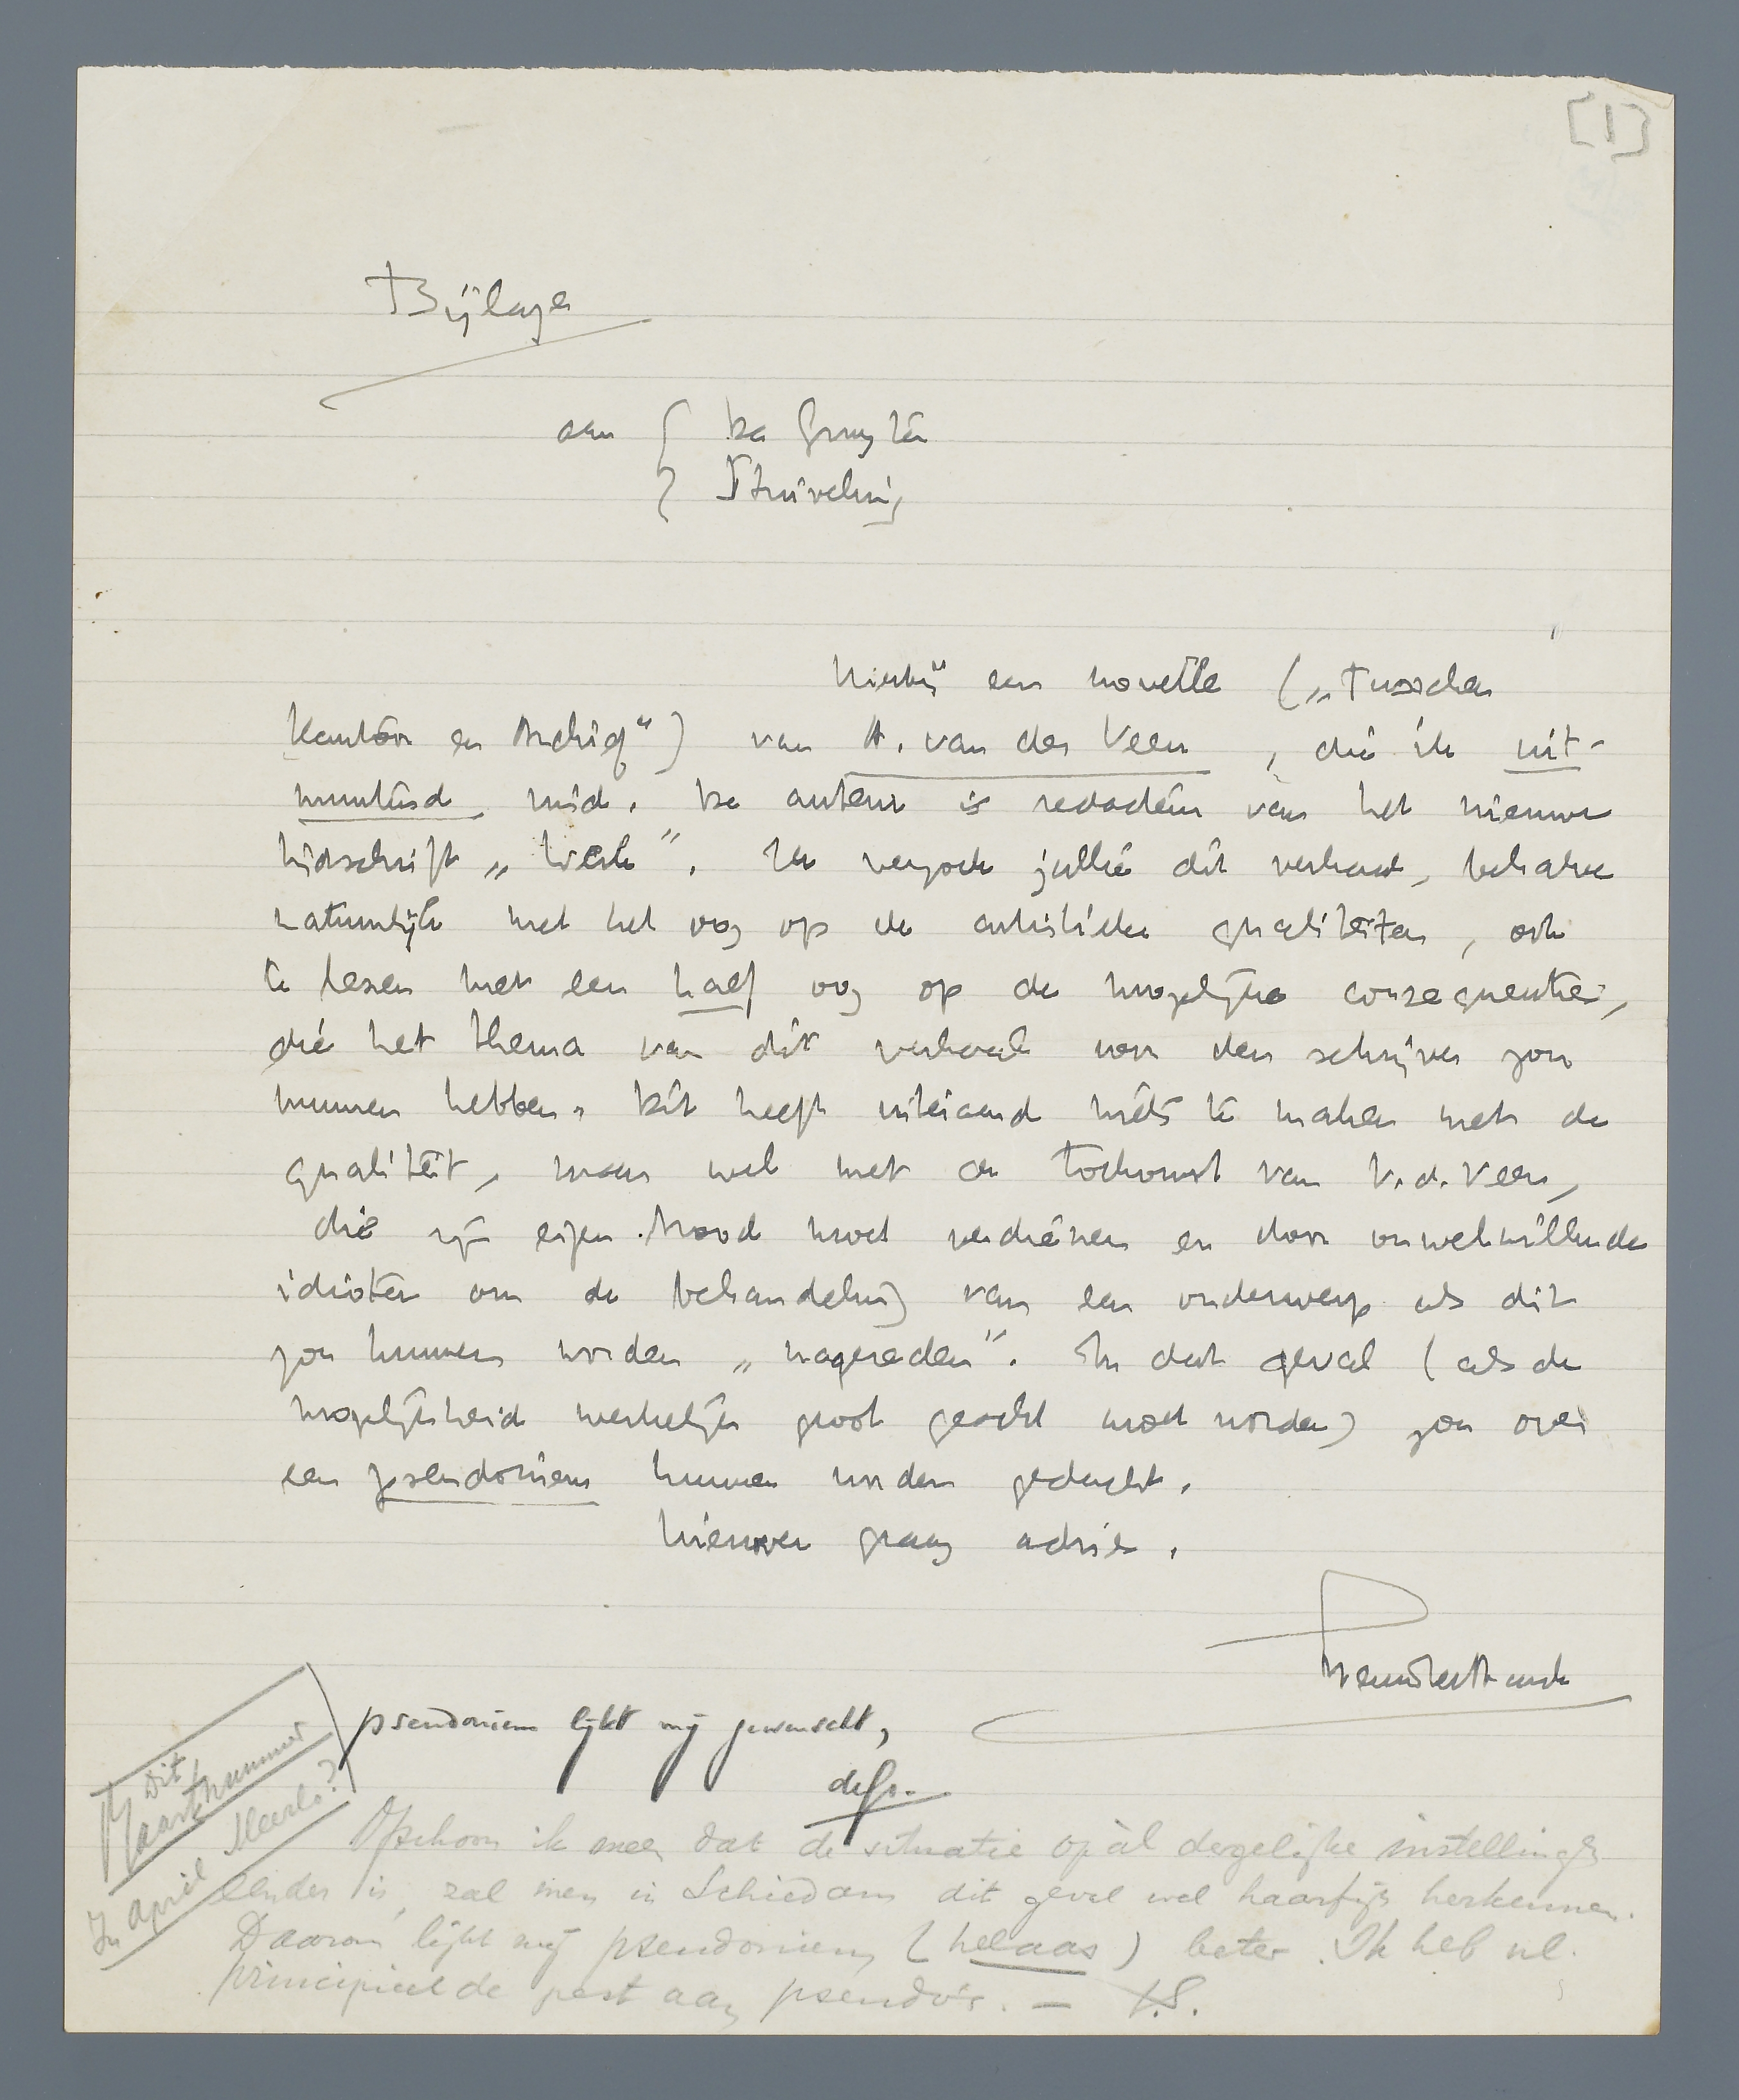 [1]
Bijlage
aan { De Gruyter
Stuiveling
Hierbij een novelle („Tusschen
Kantoor en Archief") van A. van der Veen, die ik uit-
muntend vind. De auteur is redacteur van het nieuwe
tijdschrift „Werk". Ik verzoek jullie dit verhaal, behalve
natuurlijk met het oog op de artistieke qualiteiten, ook
te lezen met een half oog op de mogelijke consequenties,
die het thema van dit verhaal voor den schrijver zou
kunnen hebben. Dit heeft uiteraard niets te maken met de
qualiteit, maar wel met de toekomst van v.d. Veen,
die zijn eigen brood moet verdienen en door onwelwillende
idioten om de behandeling van een onderwerp als dit
zou kunnen worden „nagereden". In dat geval (als de
mogelijkheid werkelijk groot geacht moet worden) zou over
een pseudoniem kunnen worden gedacht.
Hierover graag advies.
Menno ter Braak
pseudoniem lijkt mij gewenscht,
deGr.
Dit
Maartnummer
In April Meerlo?
Ofschoon ik meen dat de situatie op àl dergelijke instellingen
eender is, zal men in Schiedam dit geval wel haarfijn herkennen.
Daarom lijkt mij pseudoniem (helaas) beter. Ik heb nl.
principieel de pest aan pseudo's. — G.S.